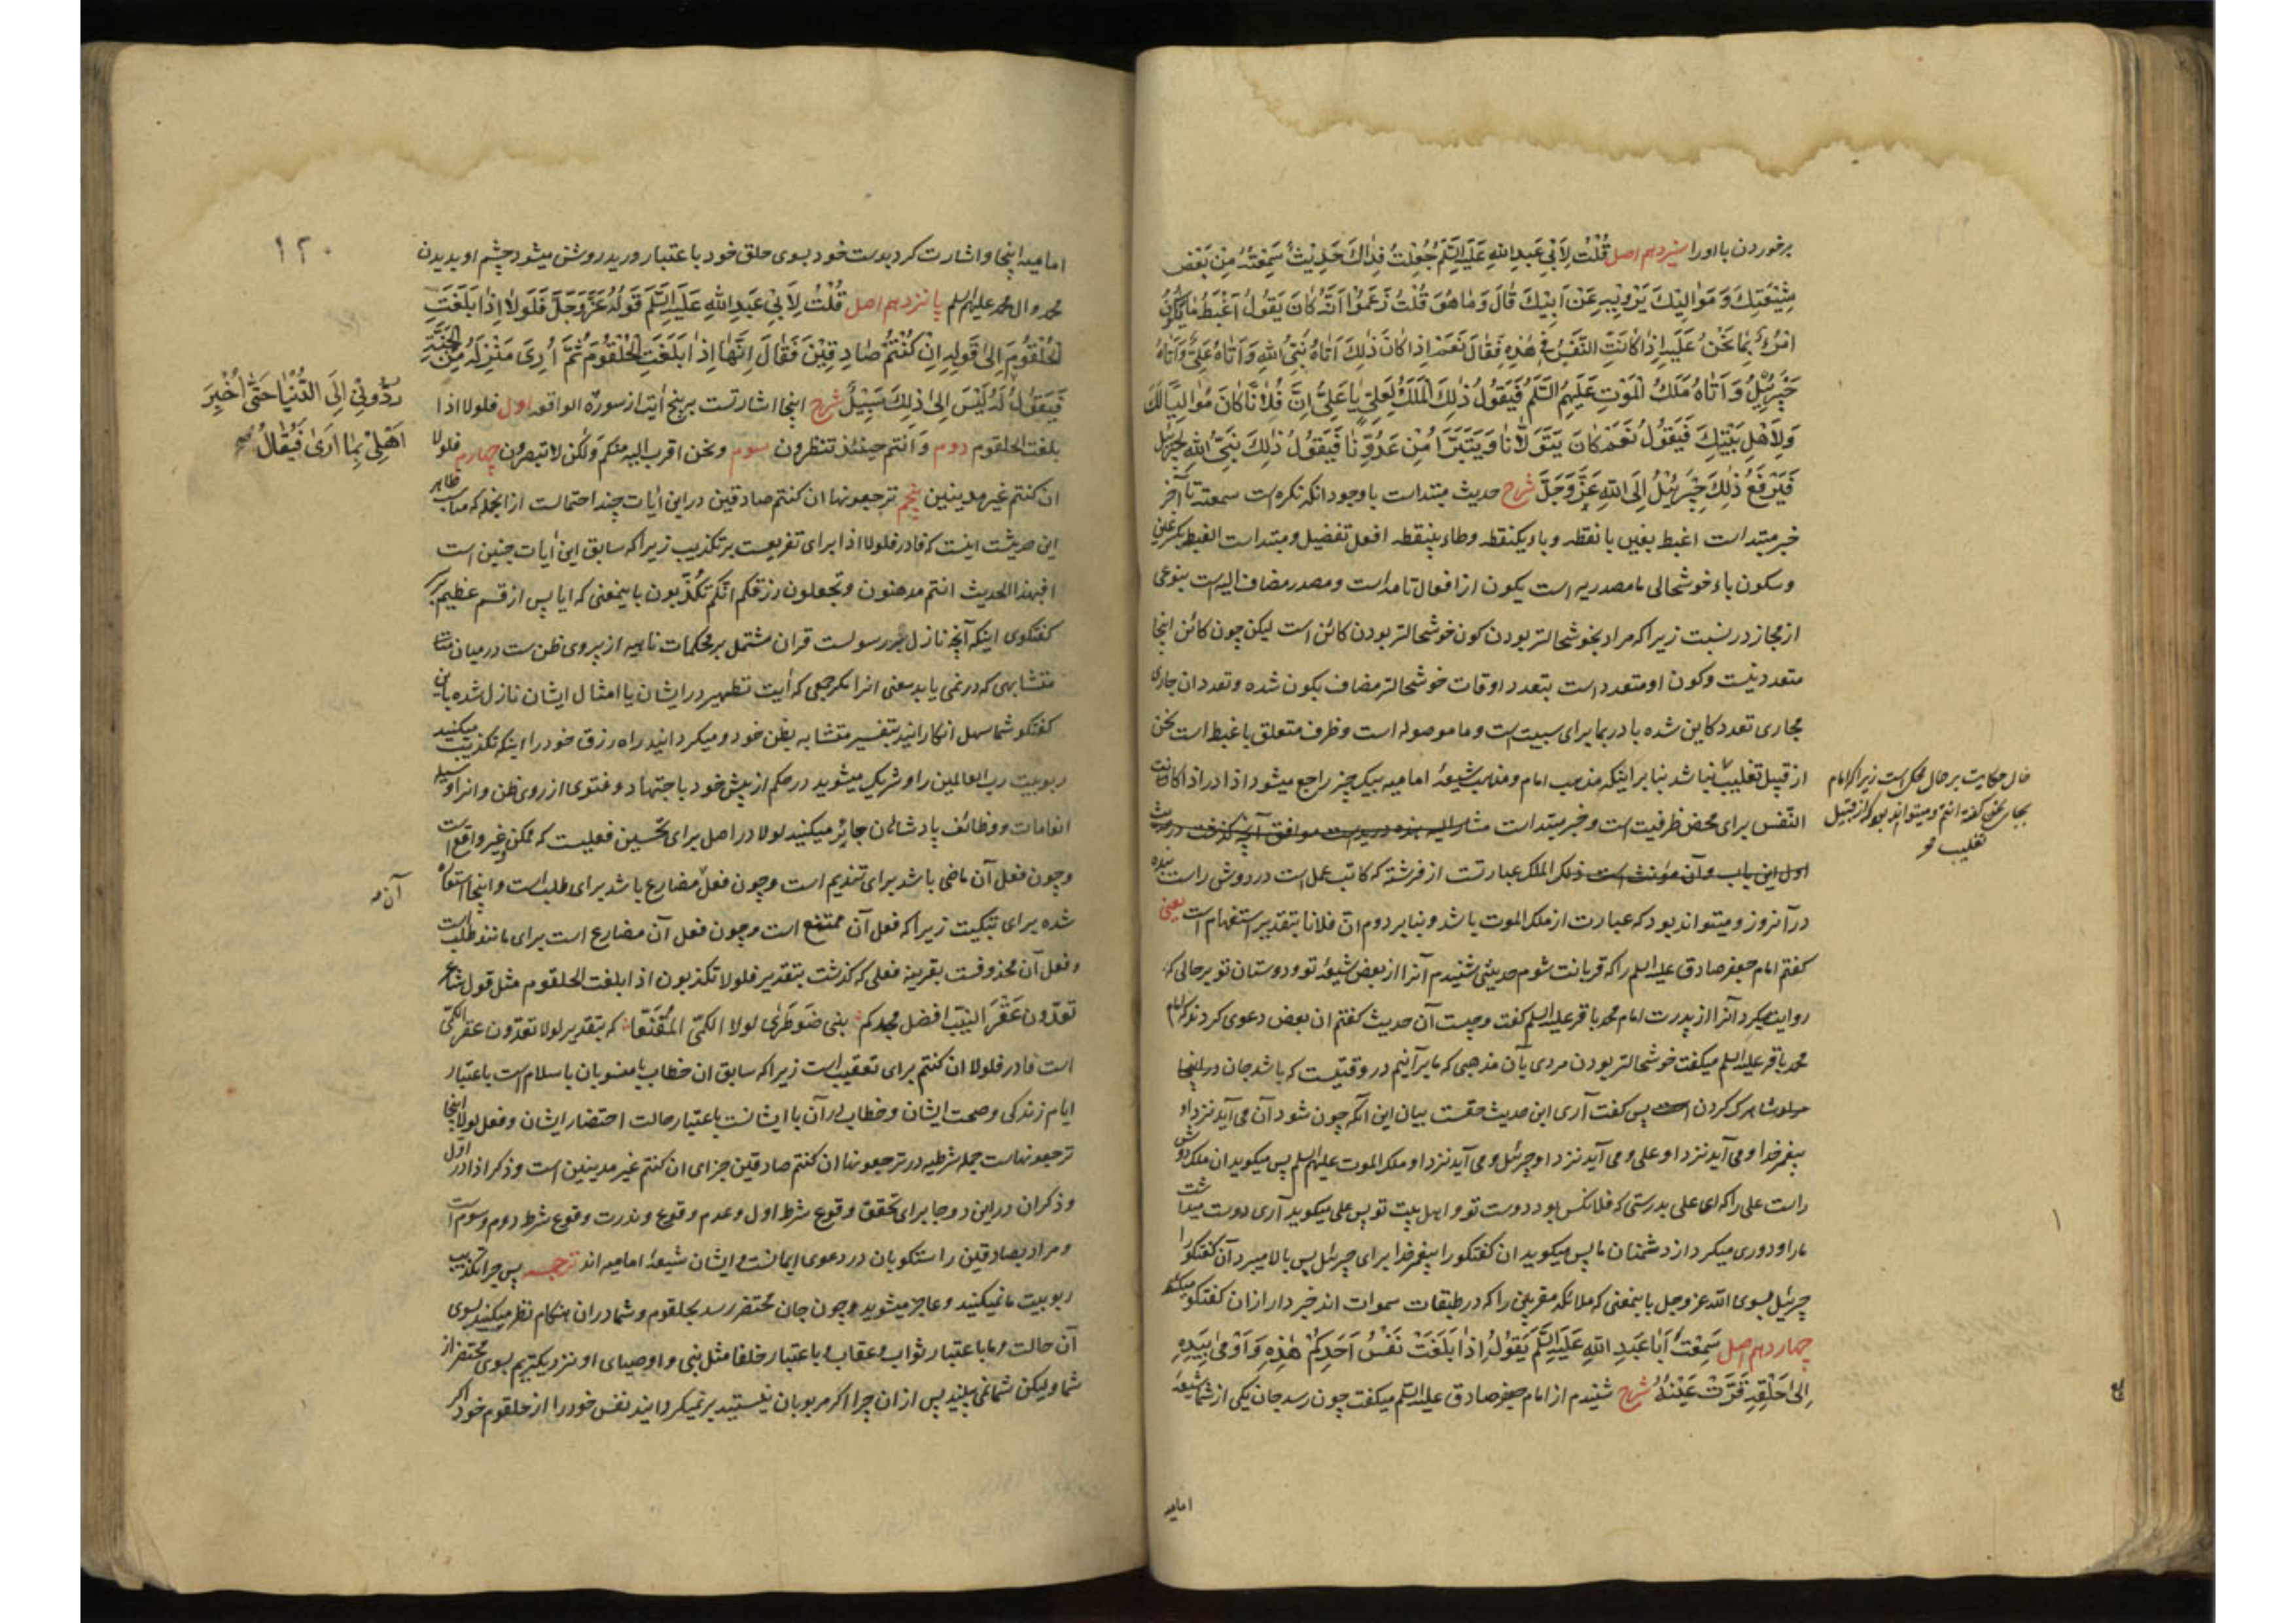 برخوردن با اورا سیزدهم اصل قُلْتُ لِاَبی عَبدِ اللهِ عَلَیهِ السَّلَم جُعِلْتُ فِدَاكَ حَدِیثٌ سَمِعْتُهُ مِنْ بَعْضِ
شِیْعَتِكَ وَ مَوَالِیْكَ یَرْوِیْهِ عَنْ اَبِیْكَ قَالَ وَمَا هُوَ قُلْتُ زَعَمُوْا اَنَّهُ كَانَ یَقُوْلُ اَغْبَطُ مَا یَكُوْنُ
امْرُءٌ بِمَا نَحْنُ عَلَیْهِ اِذَا كَانَتِ النَّفْسُ فِی هٰذِهِ فَقَالَ نَعَمْ اِذَا كَانَ ذٰلِكَ اَتَاهُ نَبِیُّ اللهِ وَ اَتَاهُ عَلِیٌّ وَ اَتَاهُ
جَبْرَئِیْلُ وَ اَتَاهُ مَلَكُ الْمَوْتِ عَلَیْهِمُ السَّلَمُ فَیَقُوْلُ ذٰلِكَ الْمَلَكُ لِعَلِیٍّ یَا عَلِیُّ اِنَّ فُلَانًا كَانَ مُوَالِیًا لَكَ
وَ لِاَهْلِ بَیْتِكَ فَیَقُوْلُ نَعَمْ كَانَ یَتَوَلَّانَا وَ یَتَبَرَّاُ مِنْ عَدُوِّنَا فَیَقُوْلُ ذٰلِكَ نَبِیُّ اللهِ لِجَبْرَئِیْلَ
فَیَرْفَعُ ذٰلِكَ جَبْرَئِیْلُ اِلَی اللهِ عَزَّ وَ جَلَّ شرح حدیث مبتداست با وجود انکه نکره است سمعته تا آخر
خبر مبتداست اغبط بغین با نقطه و باء یکنقطه وطاء بینقطه افعل تفضیل و مبتداست الغبط بکسر غین
وسکون باء خوشحالی ما مصدریه است یکون از افعال تامه است و مصدر مضاف الیه است بنوعی
از مجاز در نسبت زیراکه مراد بخوشحالتر بودن کون خوشحالتر بودن کائن است لیکن چون کائن اینجا
متعدد نیست و کون او متعدد است بتعدد اوقات خوشحالتر مضاف بکون شده و تعدد ان جاری
مجاری تعدد کاین شده با در بما برای سببیت است و ما موصوله است و ظرف متعلق باغبط است نحن
از قبیل تغلیب نباشد بنا بر اینکه مذهب امام و مذهب شیعۀ امامیه بیک چیز راجع میشود اذا در اذا کانت
النفس برای محض ظرفیت است و خبر مبتداست مشار الیه هذه ورید است موافق آنچه گذشت در حدیث
اول این باب و آن مؤنث است ذلک الملک عبارتست از فرشتۀ که کاتب عمل است در دوش راست بنده
در آنروز و میتواند بود که عبارت از ملک الموت باشد و بنابر دوم ان فلانا بتقدیر استفهام است یعنی
گفتم امام جعفر صادق علیه السلم را که قربانت شوم حدیثی شنیدم آنرا از بعض شیعۀ تو و دوستان تو برحالی که
روایت میکرد آنرا از پدرت امام محمد باقر علیه السلم گفت و چیست آن حدیث گفتم ان بعض دعوی کردند که امام
محمد باقر علیه السلم میگفت خوشحالتر بودن مردی بآن مذهبی که ما برآنیم در وقتیست که باشد جان در اینجا
پس گفت آری این حدیث حقست بیان این آنکه چون شود آن می آید نزد او
پیغمبر خدا و می آید نزد او علی و می آید نزد او جبرئیل و می آید نزد او ملک الموت علیهم السلم پس میگوید ان ملک دوش
راست علی را که ای علی بدرستی که فلانکس بود دوست تو و اهل بیت تو پس علی میگوید آری دوست میداشت
مارا و دوری میکرد از دشمنان ما پس میگوید ان گفتگو را پیغمبر خدا برای جبرئیل پس بالا میبرد آن گفتگو را
جبرئیل بسوی الله عز و جل باینمعنی که ملائکه مقربین را که در طبقات سموات اند خبردار ازان گفتگو میکند
چهاردهم اصل سَمِعْتُ اَبَا عَبدِ اللهِ عَلَیهِ السَّلَم یَقُوْلُ اِذَا بَلَغَتْ نَفْسُ اَحَدِكُمْ هٰذِهِ وَ اَوْمٰی بِیَدِهِ
اِلیٰ حَلْقِهِ قَرَّتْ عَیْنُهُ شرح شنیدم از امام جعفر صادق علیه السلم میگفت چون رسد جان یکی از شما شیعۀ
امامیه
حال حکایت بر حال محکی است زیراکه امام
بجای نحن گفته انتم و میتواند بود که از قبیل
تغلیب
۱۲۰
امامیه اینجا و اشارت کرد بدست خود بسوی حلق خود باعتبار ورید روشن میشود چشم او بدیدن
محمد و ال محمد علیهم السلم پانزدهم اصل قُلْتُ لِاَبِی عَبدِ اللهِ عَلَیهِ السَّلَمَ قَوْلُهُ عَزَّ وَجَلَّ فَلَوْلَا اِذَا بَلَغَتِ
الْحُلْقُوْمَ اِلیٰ قَوْلِهِ اِنْ كُنْتُمْ صَادِقِیْنَ فَقَالَ اِنَّهَا اِذَا بَلَغَتِ الْحُلْقُوْمَ ثُمَّ اُرِیَ مَنْزِلَهُ مِنَ الْجَنَّةِ
فَیَقُوْلُ لَهُ لَیْسَ اِلیٰ ذٰلِكَ سَبِیْلٌ شرح اینجا اشارتست بر پنج آیت از سورۀ الواقعه اول فلولا اذا
بلغت الحلقوم دوم و انتم حینئذ تنظرون سوم و نحن اقرب الیه منکم ولکن لا تبصرون چهارم فلولا
ان کنتم غیر مدینین پنجم ترجعونها ان کنتم صادقین در این آیات چند احتمالست از انجمله که مناسب ظاهر
این حدیثست اینست که فا در فلولا اذا برای تفریعست بر تکذیب زیراکه سابق این آیات چنین است
افبهذا الحدیث انتم مدهنون وتجعلون رزقکم انکم تکذبون باینمعنی که ایا پس از قسم عظیم
گفتگوی اینکه آنچه نازل بر رسولست قران مشتمل بر محکمات ناهیه از پیروی ظن ست درمیان
متشابهی که در نمی یابد معنی انرا مگر جمعی که آیت تطهیر در ایشان یا امثال ایشان نازل شده باین
گفتگو شما سهل انگارانید بتفسیر متشابه بظن خود و میگردانید راه رزق خود را اینکه تکذیب میکنید
ربوبیت رب العالمین را و شریک میشوید در حکم از پیش خود باجتهاد و فتوی از روی ظن و انرا وسیلۀ
انعامات و وظائف پادشاهان جائر میکنید لولا در اصل برای تحسین فعلیست که ممکن غیر واقع است
وچون فعل آن ماضی باشد برای تندیم است و چون فعل مضارع باشد برای طلب است و اینجا استعاره
شده برای تبکیت زیراکه فعل آن ممتنع است و چون فعل آن مضارع است برای مانند طلب است
و فعل آن محذوفست بقرینه فعلی که گذشت بتقدیر فلولا تکذبون اذا بلغت الحلقوم مثل قول شاعر
تَعُدُّوْن عَقْرَ النِّیْبِ افضل مجدکم بنی ضَوْطَریٰ لولا الکمیّ المُقَنَّعَا که بتقدیر لولا تعدّون عقر الکمیّ
است فا در فلولا ان کنتم برای تعقیب است زیراکه سابق ان خطاب با منسوبان باسلام است باعتبار
ایام زندگی و صحت ایشان و خطاب در آن با ایشانست باعتبار حالت احتضار ایشان و فعل لولا اینجا
ترجعونهاست جملۀ شرطیه در ترجعونها ان کنتم صادقین جزای ان کنتم غیر مدینین است و ذکر اذا در اول
و ذکر ان در این دو جا برای تحقق وقوع شرط اول و عدم وقوع و ندرت وقوع شرط دوم و سوم است
و مراد بصادقین راستگویان در دعوی ایمانست و ایشان شیعۀ امامیه اند ترجمه پس چرا تکذیب
ربوبیت ما نمیکنید و عاجز میشوید چون جان محتضر رسد بحلقوم و شما دران هنگام نظر میکنید بسوی
آن حالت و ما باعتبار ثواب و عقاب و باعتبار خلفا مثل نبی و اوصیای او نزدیکتریم بسوی محتضر از
شما ولیکن شما نمی بینید پس ازان چرا اگر مربوبان نیستید برنمیگردانید نفس خود را از حلقوم خود اگر
رُدُّوْنِی اِلَی الدُّنْیَا حَتّٰی اُخْبِرَ
اَهْلِیْ بِمَا اَرٰی فَیُقَالُ
آن